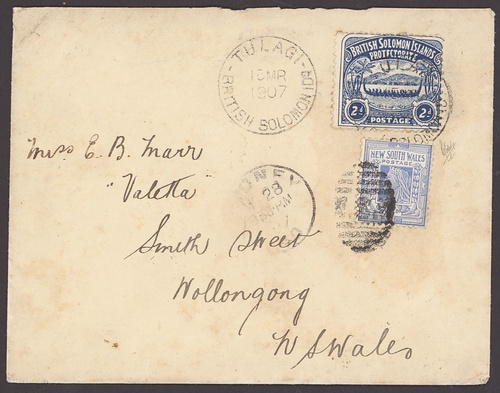 TULAGI
BRITISH SOLOMON
MR
1907
BRITISH SOLOMON ISLANDS
PROTECTORATE
TULAGI
2d 2d
POSTAGE
Miss E. B. Marr
"Valetta"
Smith Street
Wollongong
N S Wales
NEW SOUTH WALES
POSTAGE
SYDNEY
28
PM